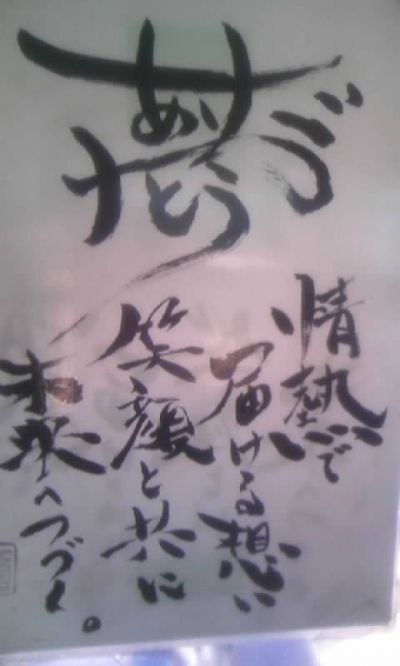 ありがとう
情熱で
届ける想い
笑顔と共に
未来へつづく。